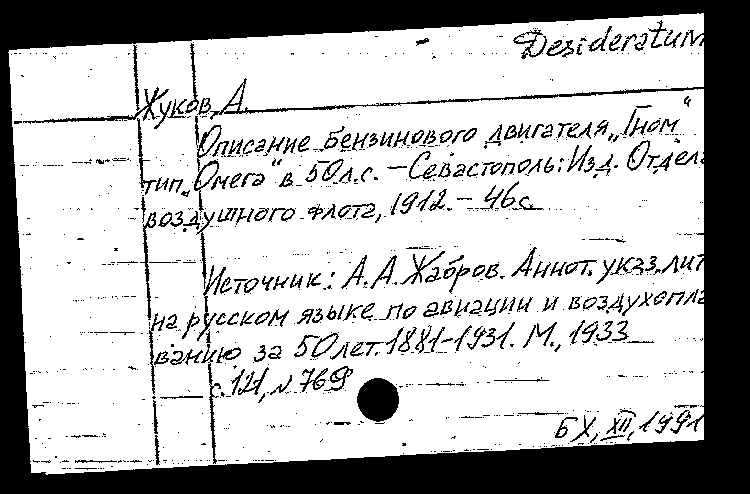 Desideratum
Жуков, А.
Описание бензинового двигателя „Гном“
тип „Омега“ в 50 л.с. – Севастополь: Изд. Отдела
воздушного флота, 1912. – 46 с.
Источник: А.А. Жабров. Аннот. указ. лит
на русском языке по авиации и воздухопла
ванию за 50 лет. 1881-1931. М., 1933
с. 121, № 769
БХ, XII, 1991